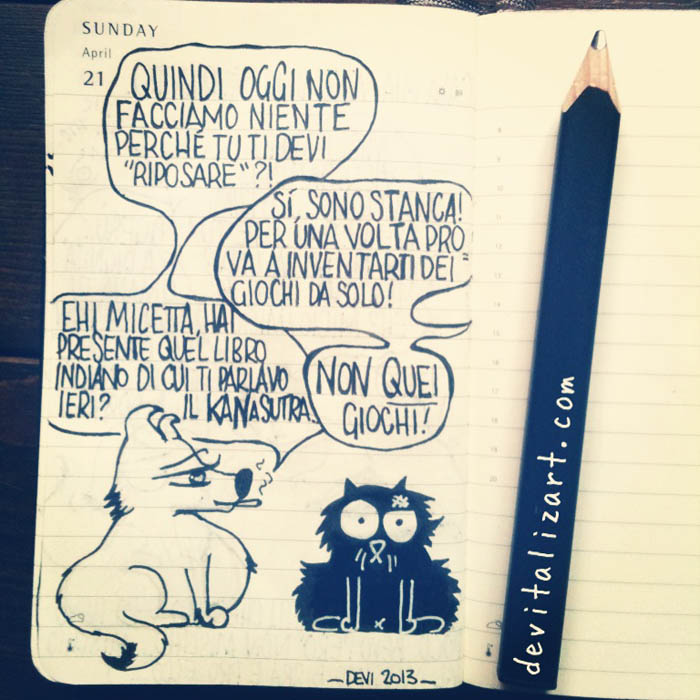 SUNDAY
April
21
QUINDI OGGI NON
FACCIAMO NIENTE
PERCHÉ TU TI DEVI
"RIPOSARE"?!
SÍ, SONO STANCA!
PER UNA VOLTA PRO
VA A INVENTARTI DEI =
GIOCHI DA SOLO!
EHI MICETTA, HAI
PRESENTE QUEL LIBRO
INDIANO DI CUI TI PARLAVO
IERI? IL KANASUTRA..
NON QUEI
GIOCHI!
—DEVI 2013—
devitalizart.com
8